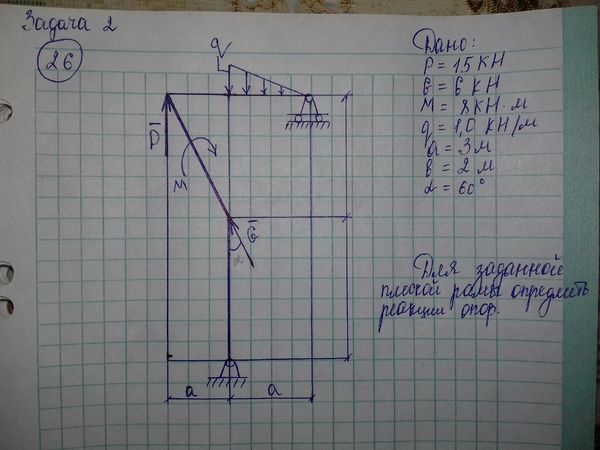 Задача 2
26
q
P
M
G
α
a
a
Дано:
P = 15 кН
G = 6 кН
M = 8 кН·м
q = 1,0 кН/м
a = 3 м
в = 2 м
α = 60°
Для заданной
плоской рамы определить
реакции опор.